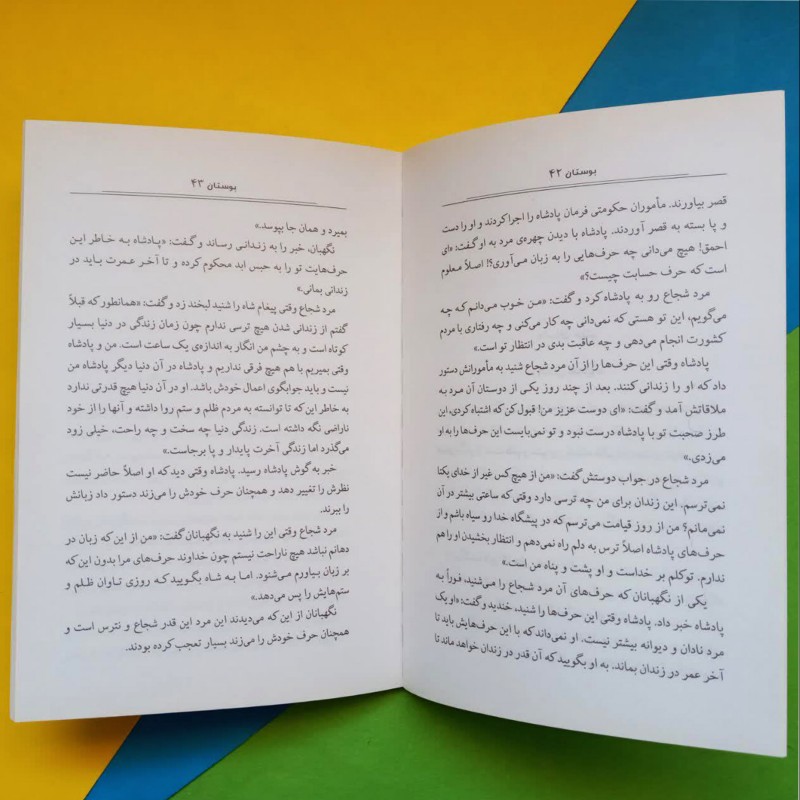 بوستان ۴۲
قصر بیاورند. مأموران حکومتی فرمان پادشاه را اجرا کردند و او را دست
و پا بسته به قصر آوردند. پادشاه با دیدن چهره‌ی مرد به او گفت: «ای
احمق! هیچ می‌دانی چه حرف‌هایی را به زبان می‌آوری؟! اصلاً معلوم
است که حرف حسابت چیست؟»
مرد شجاع رو به پادشاه کرد و گفت: «من خوب می‌دانم که چه
می‌گویم، این تو هستی که نمی‌دانی چه کار می‌کنی و چه رفتاری با مردم
کشورت انجام می‌دهی و چه عاقبت بدی در انتظار تو است.»
پادشاه وقتی این حرف‌ها را از آن مرد شجاع شنید به مأمورانش دستور
داد که او را زندانی کنند. بعد از چند روز یکی از دوستان آن مرد به
ملاقاتش آمد و گفت: «ای دوست عزیز من! قبول کن که اشتباه کردی، این
طرز صحبت تو با پادشاه درست نبود و تو نمی‌بایست این حرف‌ها را به او
می‌زدی.»
مرد شجاع در جواب دوستش گفت: «من از هیچ کس غیر از خدای یکتا
نمی‌ترسم. این زندان برای من چه ترسی دارد وقتی که ساعتی بیشتر در آن
نمی‌مانم؟ من از روز قیامت می‌ترسم که در پیشگاه خدا رو سیاه باشم و از
حرف‌های پادشاه اصلاً ترس به دلم راه نمی‌دهم و انتظار بخشیدن او را هم
ندارم. توکلم بر خداست و او پشت و پناه من است.»
یکی از نگهبانان که حرف‌های آن مرد شجاع را می‌شنید، فوراً به
پادشاه خبر داد. پادشاه وقتی این حرف‌ها را شنید، خندید و گفت: «او یک
مرد نادان و دیوانه بیشتر نیست. او نمی‌داند که با این حرف‌هایش باید تا
آخر عمر در زندان بماند. به او بگویید که آن قدر در زندان خواهد ماند تا
بوستان ۴۳
بمیرد و همان جا بپوسد.»
نگهبان، خبر را به زندانی رساند و گفت: «پادشاه به خاطر این
حرف‌هایت تو را به حبس ابد محکوم کرده و تا آخر عمرت باید در
زندانی بمانی.»
مرد شجاع وقتی پیغام شاه را شنید لبخند زد و گفت: «همانطور که قبلاً
گفتم از زندانی شدن هیچ ترسی ندارم چون زمان زندگی در دنیا بسیار
کوتاه است و به چشم من انگار به اندازه‌ی یک ساعت است. من و پادشاه
وقتی بمیریم با هم هیچ فرقی نداریم و پادشاه در آن دنیا دیگر پادشاه من
نیست و باید جوابگوی اعمال خودش باشد. او در آن دنیا هیچ قدرتی ندارد
به خاطر این که تا توانسته به مردم ظلم و ستم روا داشته و آنها را از خود
ناراضی نگه داشته است. زندگی دنیا چه سخت و چه راحت، خیلی زود
می‌گذرد اما زندگی آخرت پایدار و پا برجاست.»
خبر به گوش پادشاه رسید. پادشاه وقتی دید که او اصلاً حاضر نیست
نظرش را تغییر دهد و همچنان حرف خودش را می‌زند دستور داد زبانش
را ببرند.
مرد شجاع وقتی این را شنید به نگهبانان گفت: «من از این که زبان در
دهانم نباشد هیچ ناراحت نیستم چون خداوند حرف‌های مرا بدون این که
بر زبان بیاورم می‌شنود. اما به شاه بگویید که روزی تاوان ظلم و
ستم‌هایش را پس می‌دهد.»
نگهبانان از این که می‌دیدند این مرد این قدر شجاع و نترس است و
همچنان حرف خودش را می‌زند بسیار تعجب کرده بودند.